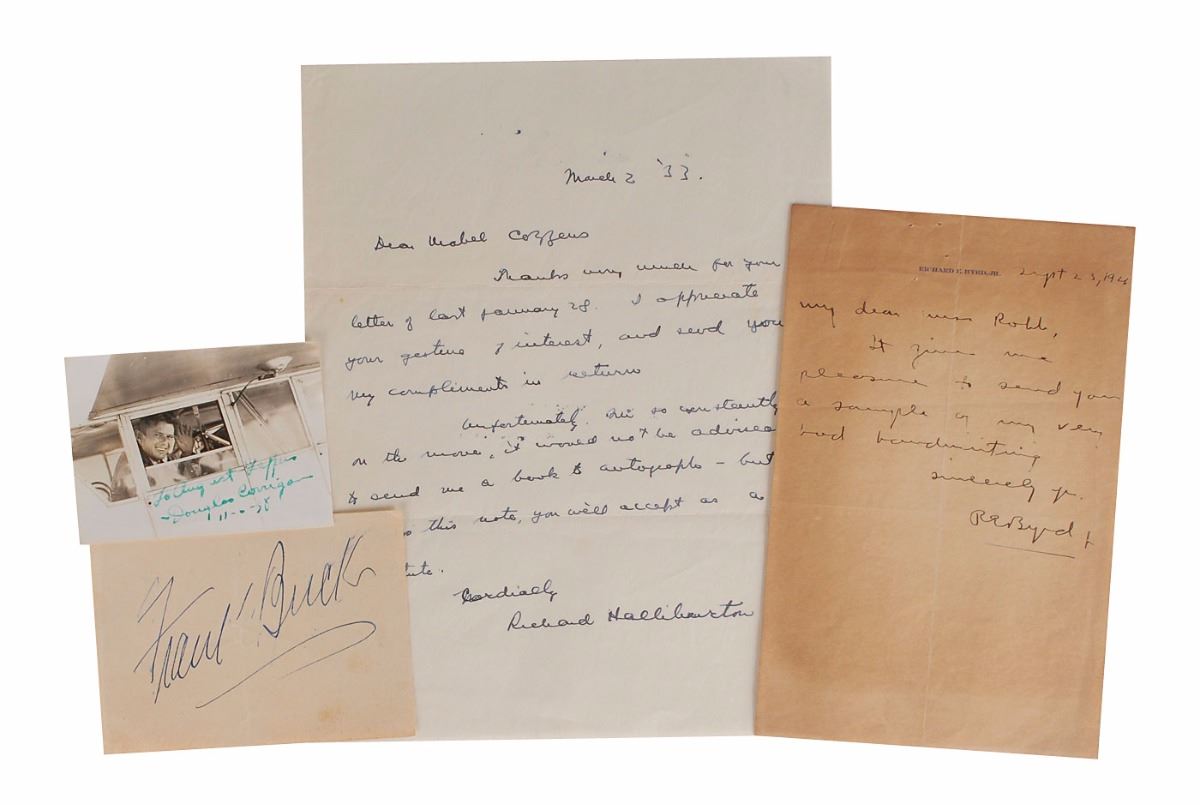 March 2 '33.
Dear Mabel Cozzens
Thanks very much for your
letter of last January 28. I appreciate
your gesture of interest, and send you
my compliments in return
Unfortunately, I'm so constantly
on the move, it would not be advised
to send me a book to autograph - but
this note, you will accept as a
tute.
Cordially
Richard Halliburton
RICHARD E. BYRD, JR.
Sept 23, 192
My dear Miss Robb,
It gives me
pleasure to send you
a sample of my very
bad handwriting
Sincerely yr.
R E Byrd Jr
To August
-Douglas Corrigan
Frank Buck